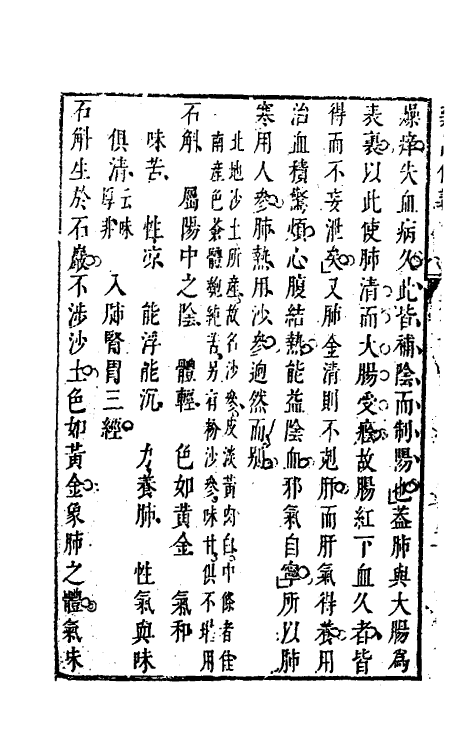 燥癢失血病久此皆補陰而制陽也蓋肺與大腸為
表裏以此使肺清而大腸受廕故腸紅下血久者皆
得而不妄泄矣又肺金清則不剋肝而肝氣得養用
治血積驚煩心腹結熱能益陰血邪氣自寧所以肺
寒用人參肺熱用沙參逈然而別
北地沙土所產故名沙參皮淡黃肉白中條者佳
南產色蒼體匏純苦另有粉沙參味甘俱不堪用
石斛 屬陽中之陰 體輕 色如黃金 氣和
味苦 性凉 能浮能沉 力養肺 性氣與味
俱清云味厚非 入肺腎胃三經
石斛生於石巖不涉沙土色如黃金象肺之體氣味